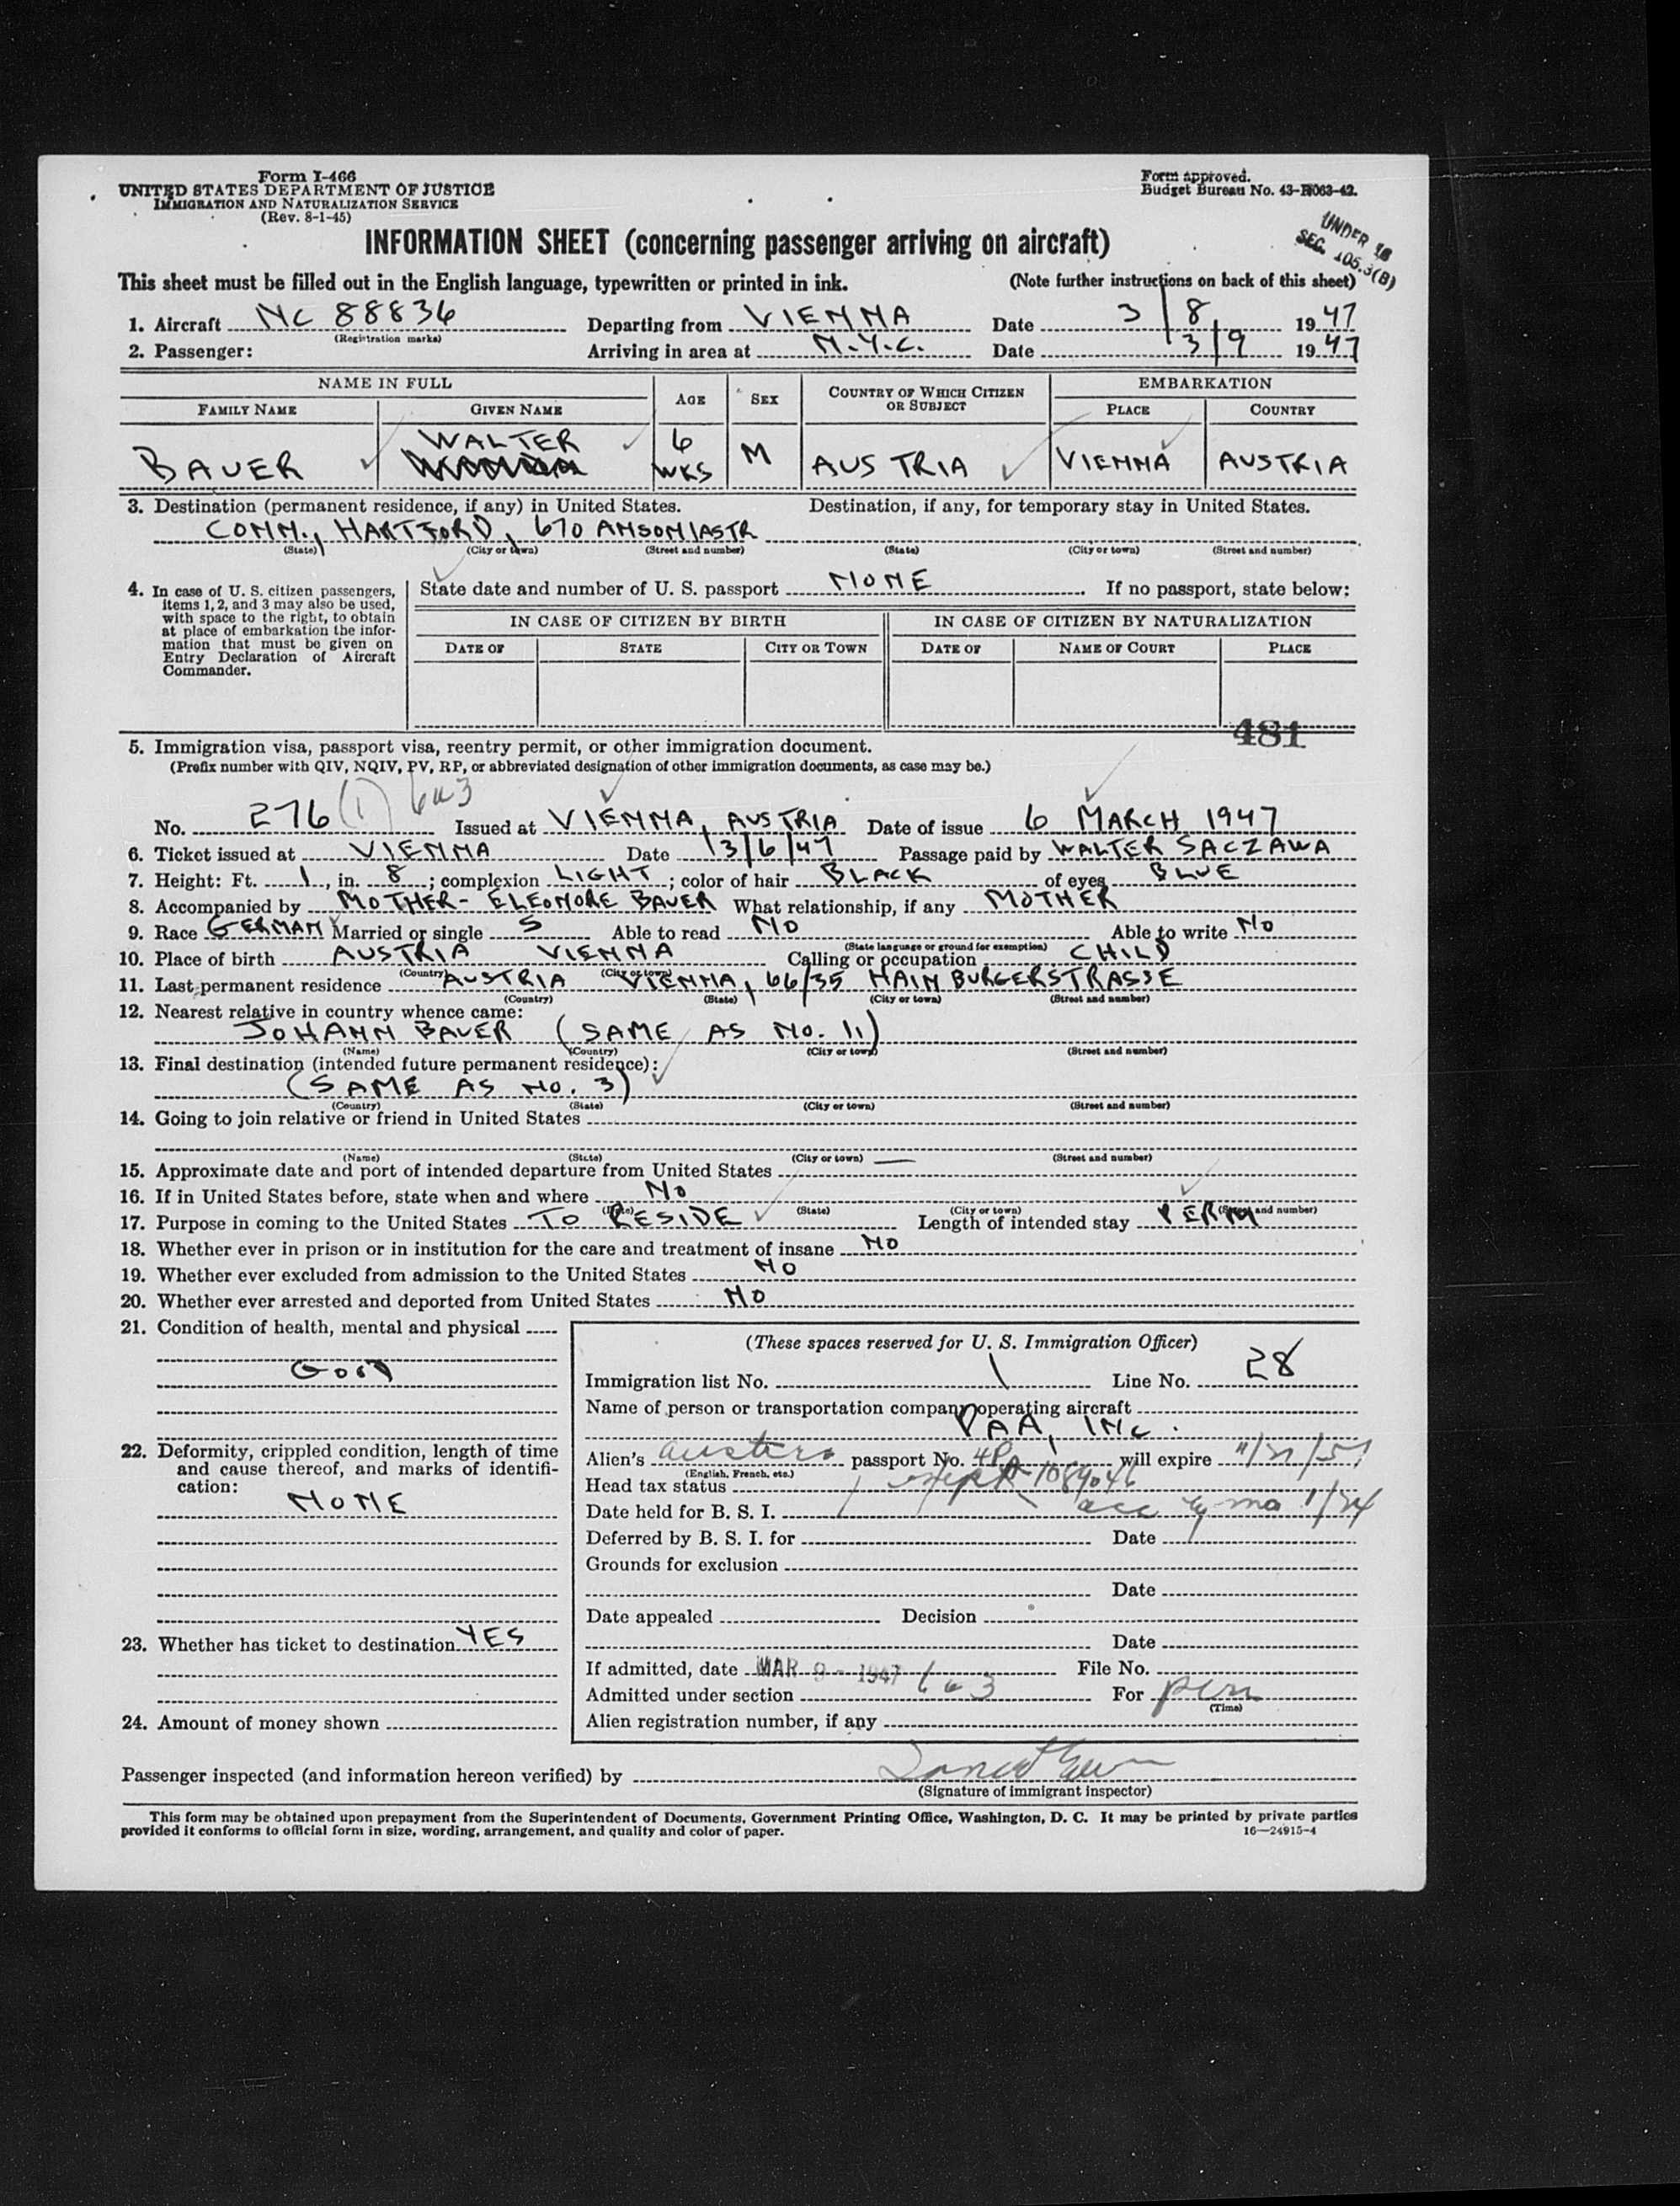 Form I-466
UNITED STATES DEPARTMENT OF JUSTICE
IMMIGRATION AND NATURALIZATION SERVICE
(Rev. 8-1-45)
Form approved.
Budget Bureau No. 43-R063-42.
UNDER 16
SEC. 105.3(B)
INFORMATION SHEET (concerning passenger arriving on aircraft)
This sheet must be filled out in the English language, typewritten or printed in ink. (Note further instructions on back of this sheet)
1. Aircraft NC 88836 Departing from VIENNA Date 3/8 1947
(Registration marks)
2. Passenger: Arriving in area at N.Y.C. Date 3/9 1947
NAME IN FULL AGE SEX COUNTRY OF WHICH CITIZEN OR SUBJECT EMBARKATION
FAMILY NAME GIVEN NAME PLACE COUNTRY
BAUER WALTER 6 WKS M AUSTRIA VIENNA AUSTRIA
3. Destination (permanent residence, if any) in United States. Destination, if any, for temporary stay in United States.
CONN., HARTFORD, 670 ANSONIA STR
(State) (City or town) (Street and number) (State) (City or town) (Street and number)
4. In case of U. S. citizen passengers, items 1, 2, and 3 may also be used, with space to the right, to obtain at place of embarkation the information that must be given on Entry Declaration of Aircraft Commander.
State date and number of U. S. passport NONE If no passport, state below:
IN CASE OF CITIZEN BY BIRTH IN CASE OF CITIZEN BY NATURALIZATION
DATE OF STATE CITY OR TOWN DATE OF NAME OF COURT PLACE
481
5. Immigration visa, passport visa, reentry permit, or other immigration document.
(Prefix number with QIV, NQIV, PV, RP, or abbreviated designation of other immigration documents, as case may be.)
No. 276 (1) 6a3 Issued at VIENNA, AUSTRIA Date of issue 6 MARCH 1947
6. Ticket issued at VIENNA Date 3/6/47 Passage paid by WALTER SACZAWA
7. Height: Ft. 1, in. 8; complexion LIGHT; color of hair BLACK of eyes BLUE
8. Accompanied by MOTHER - ELEONORE BAUER What relationship, if any MOTHER
9. Race GERMAN Married or single S Able to read NO Able to write NO
(State language or ground for exemption)
10. Place of birth AUSTRIA VIENNA Calling or occupation CHILD
(Country) (City or town)
11. Last permanent residence AUSTRIA VIENNA, 66/35 HAINBURGERSTRASSE
(Country) (State) (City or town) (Street and number)
12. Nearest relative in country whence came:
JOHANN BAUER (SAME AS NO. 11)
(Name) (Country) (City or town) (Street and number)
13. Final destination (intended future permanent residence):
(SAME AS NO. 3)
(Country) (State) (City or town) (Street and number)
14. Going to join relative or friend in United States
(Name) (State) (City or town) (Street and number)
15. Approximate date and port of intended departure from United States —
16. If in United States before, state when and where NO
(Date) (State) (City or town) (Street and number)
17. Purpose in coming to the United States TO RESIDE Length of intended stay PERM
18. Whether ever in prison or in institution for the care and treatment of insane NO
19. Whether ever excluded from admission to the United States NO
20. Whether ever arrested and deported from United States NO
21. Condition of health, mental and physical
GOOD
22. Deformity, crippled condition, length of time and cause thereof, and marks of identification:
NONE
23. Whether has ticket to destination YES
24. Amount of money shown
(These spaces reserved for U. S. Immigration Officer)
Immigration list No. 1 Line No. 28
Name of person or transportation company operating aircraft
PAA, INC.
Alien's passport No. will expire
(English, French, etc.)
Head tax status 1089046
Date held for B. S. I.
Deferred by B. S. I. for Date
Grounds for exclusion
Date
Date appealed Decision
Date
If admitted, date MAR 9 - 1947 File No.
Admitted under section 6a3 For perm
(Time)
Alien registration number, if any
Passenger inspected (and information hereon verified) by
(Signature of immigrant inspector)
This form may be obtained upon prepayment from the Superintendent of Documents, Government Printing Office, Washington, D. C. It may be printed by private parties
provided it conforms to official form in size, wording, arrangement, and quality and color of paper. 16—24915-4